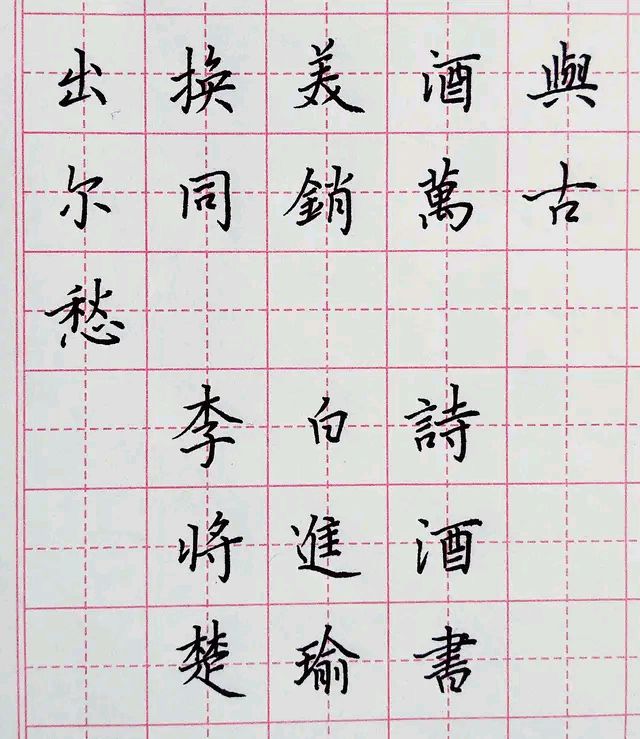 出换美酒與
尔同銷萬古
愁
李白詩
将進酒
楚瑜書